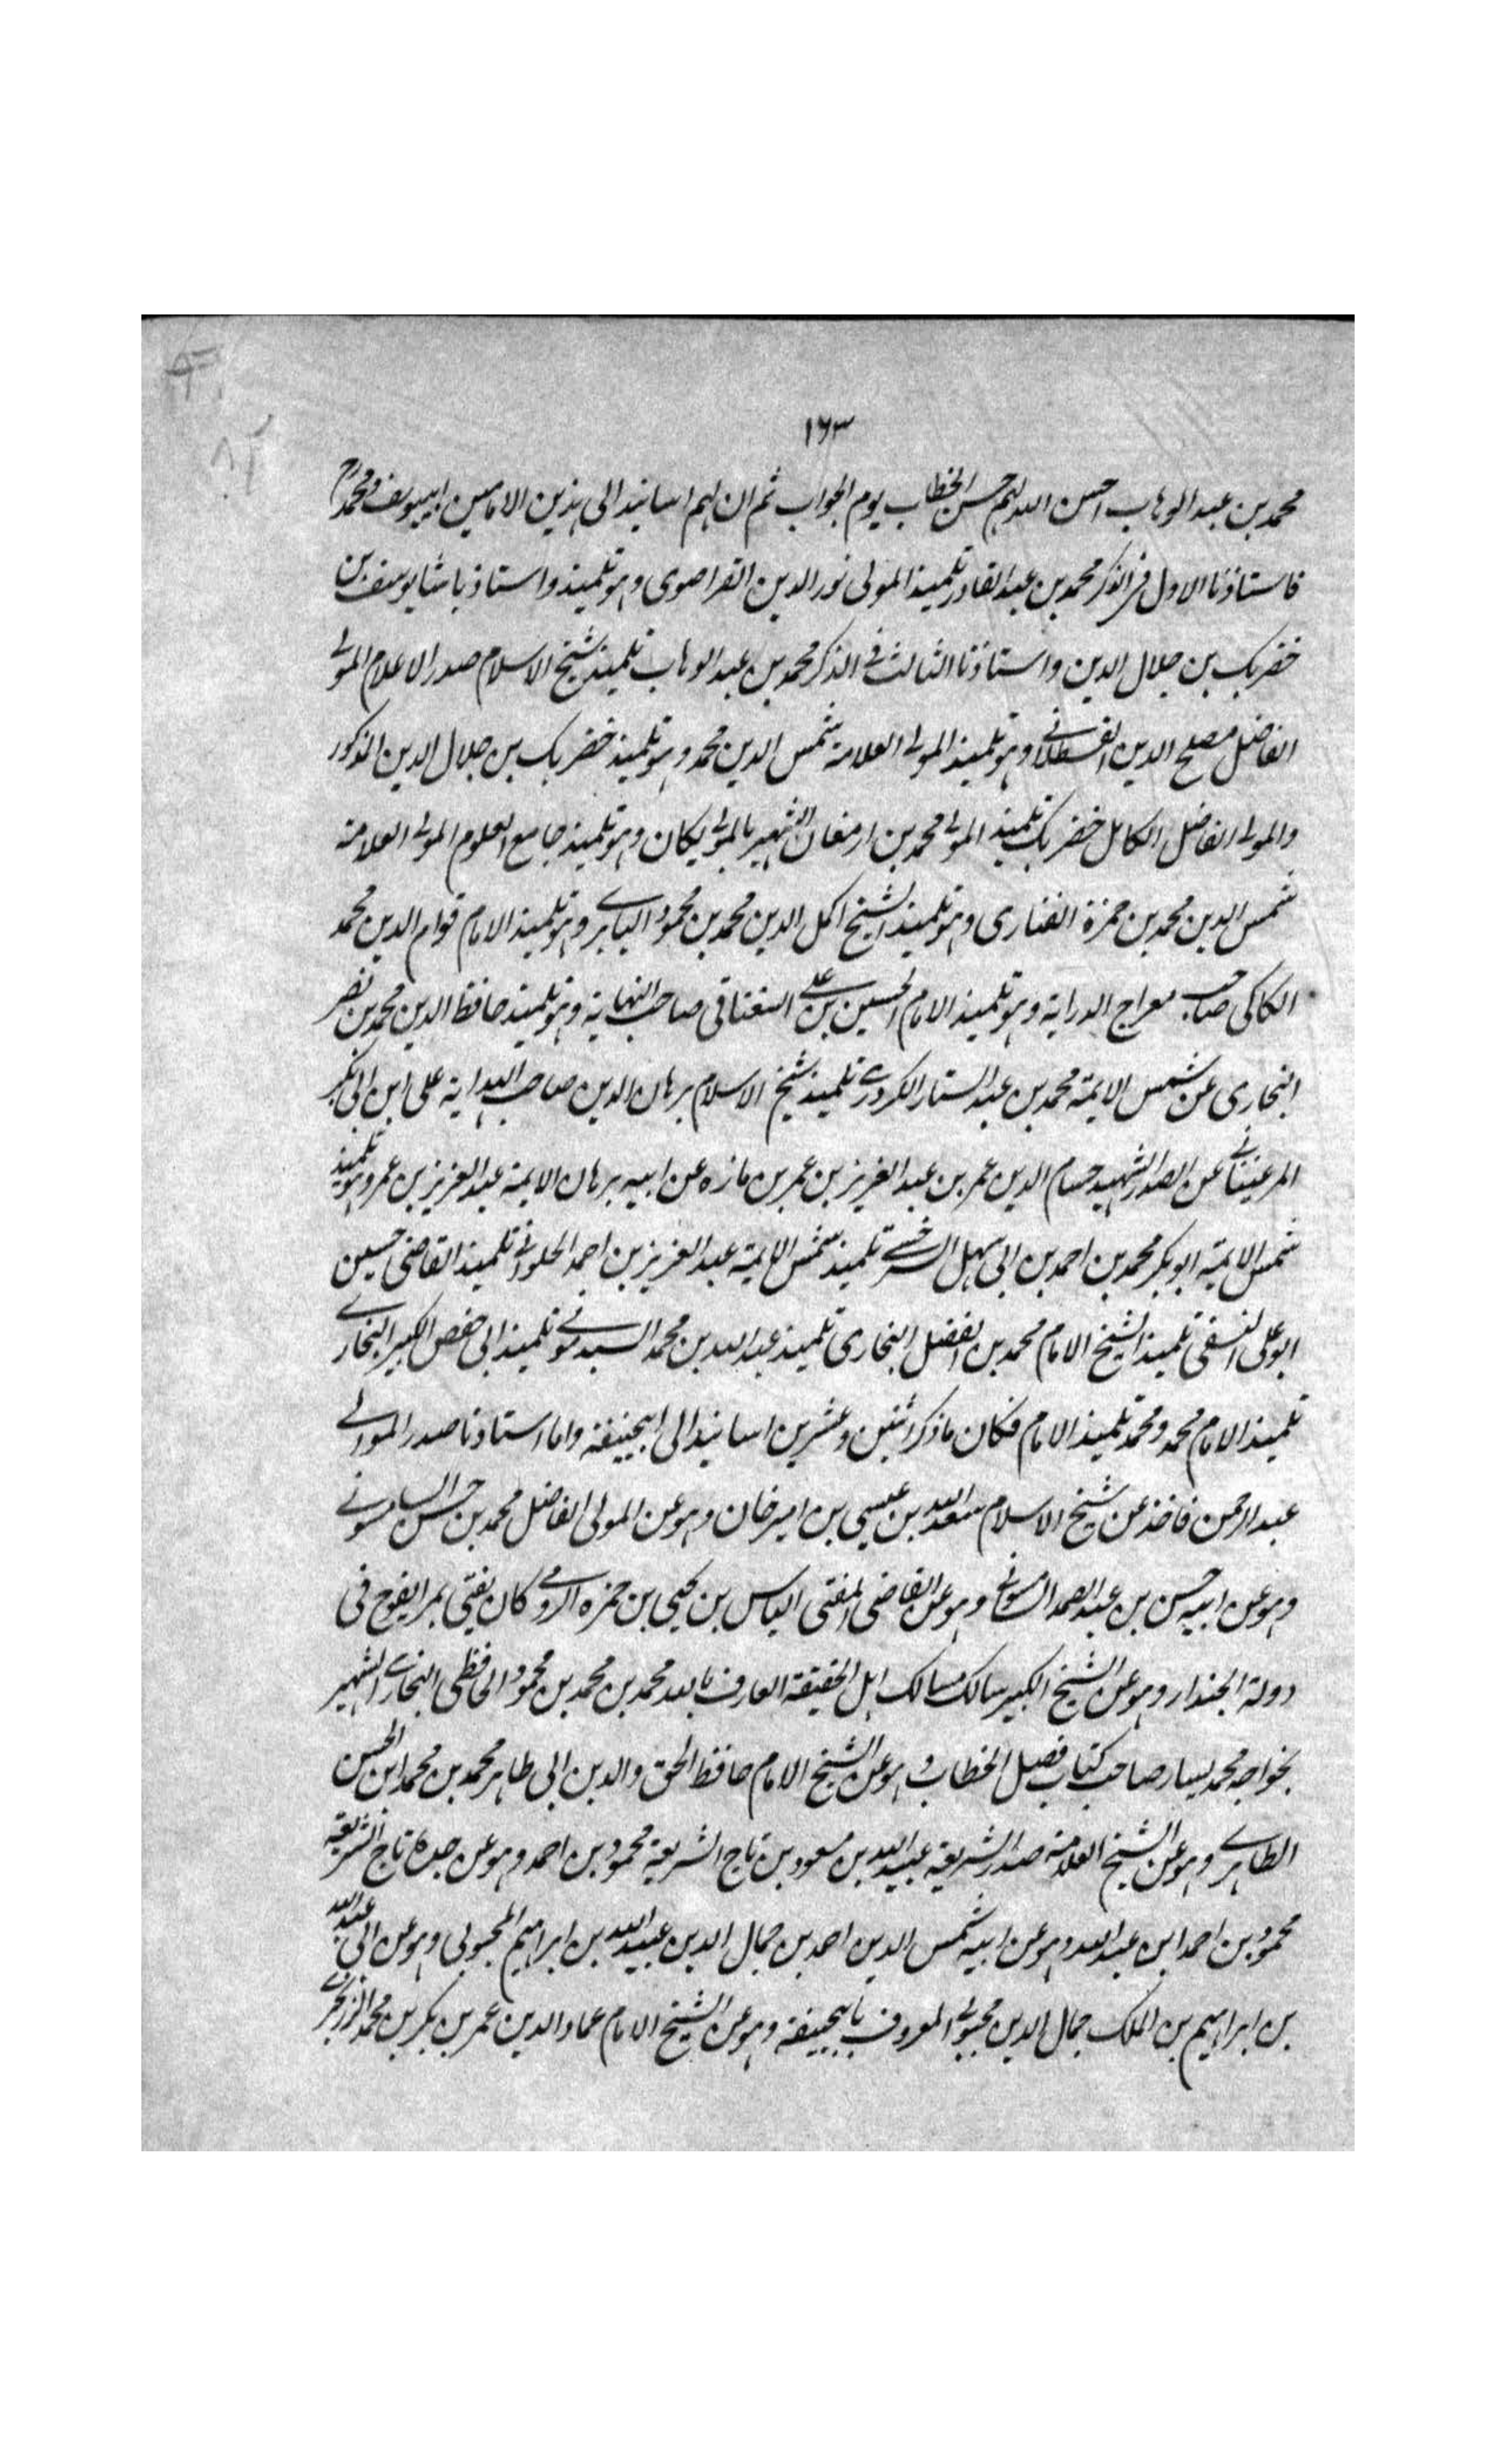 ١٦٣
محمد بن عبد الوهاب احسن الله لهم حسن الخطاب يوم الجواب ثم ان لهم اسانيد الى هذين الامامين ابييوسف ومحمد رح
فاستاذنا الاول فى الذكر محمد بن عبد القادر تلميذ المولى نور الدين القراصوى وهو تلميذ واستاذ باشا يوسف بن
خضر بك بن جلال الدين واستاذنا الثالث فى الذكر محمد بن عبد الوهاب تلميذ شيخ الاسلام صدر الاعلام المولى
الفاضل مصلح الدين القسطلانى وهو تلميذ المولى العلامة شمس الدين محمد وهو تلميذ خضر بك بن جلال الدين المذكور
والمولى الفاضل الكامل خضر بك تلميذ المولى محمد بن ارمغان الشهير بالمولى يكان وهو تلميذ جامع العلوم المولى العلامة
شمس الدين محمد بن حمزة الفنارى وهو تلميذ الشيخ اكمل الدين محمد بن محمود البابرى وهو تلميذ الامام قوام الدين محمد
الكاكى صاحب معراج الدراية وهو تلميذ الامام الحسين بن على السغناقى صاحب النهاية وهو تلميذ حافظ الدين محمد بن نصر
البخارى عن شمس الايمة محمد بن عبد الستار الكردرى تلميذ شيخ الاسلام برهان الدين صاحب الهداية على ابن ابى بكر
المرغينانى عن الصدر الشهيد حسام الدين عمر بن عبد العزيز بن عمر بن مازه عن ابيه برهان الايمة عبد العزيز بن عمر وهو تلميذ
شمس الايمة ابو بكر محمد بن احمد بن ابى سهل السرخسى تلميذ شمس الايمة عبد العزيز بن احمد الحلوانى تلميذ القاضى حسين
ابو على النسفى تلميذ الشيخ الامام محمد بن الفضل البخارى تلميذ عبد الله بن محمد السبذمونى تلميذ ابى حفص الكبير البخارى
تلميذ الامام محمد ومحمد تلميذ الامام فكان ما ذكر اثنين وعشرين اسانيد الى ابيحنيفة واما استاذنا صدر الموالى
عبد الرحمن فاخذ عن شيخ الاسلام سعد الله بن عيسى بن امير خان وهو عن المولى الفاضل محمد بن حسن السامسونى
وهو عن ابيه حسن بن عبد الصمد السامسونى وهو عن القاضى المفتى الياس بن يحيى بن حمزه الرومى كان يفتى بمرزيفوج فى
دولة الجندار وهو عن الشيخ الكبير سالك مسالك اهل الحقيقة العارف بالله محمد بن محمد بن محمود الحافظى البخارى الشهير
بخواجه محمد پسار صاحب كتاب فصل الخطاب وهو عن الشيخ الامام حافظ الحق والدين ابى طاهر محمد بن محمد ابن الحسن
الطاهرى وهو عن الشيخ العلامة صدر الشريعة عبيد الله بن مسعود بن تاج الشريعة محمود بن احمد وهو عن جده تاج الشريعة
محمود بن احمد ابن عبد الله وهو عن ابيه شمس الدين احمد بن جمال الدين عبيد الله بن ابراهيم المحبوبى وهو عن ابى عبد الله
بن ابراهيم بن الملك جمال الدين محبوبى المعروف بابيحنيفة وهو عن الشيخ الامام عماد الدين عمر بن بكر بن محمد الزرنجرى